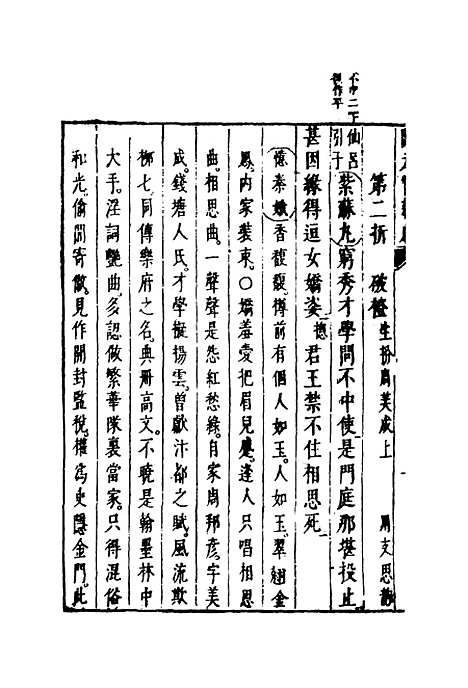 不中二下
俱作平
第二折　破橙　生扮周美成上　用支思韻
仙呂引子　紫蘇丸　窮秀才學問不中使是門庭那堪投止
甚因緣得逗女嬌姿總君王禁不住相思死
憶秦娥　香馥馥樽前有個人如玉人如玉翠翹金
鳳內家裝束○嬌羞愛把眉兒蹙逢人只唱相思
曲相思曲一聲聲是怨紅愁綠自家周邦彥字美
成錢塘人氏才學擬揚雲曾獻汴都之賦風流欺
柳七同傳樂府之名典冊高文不曉是翰墨林中
大手淫詞豔曲多認做繁華隊裏當家只得混俗
和光偷閒寄傲見作開封監稅權為吏隱金門此